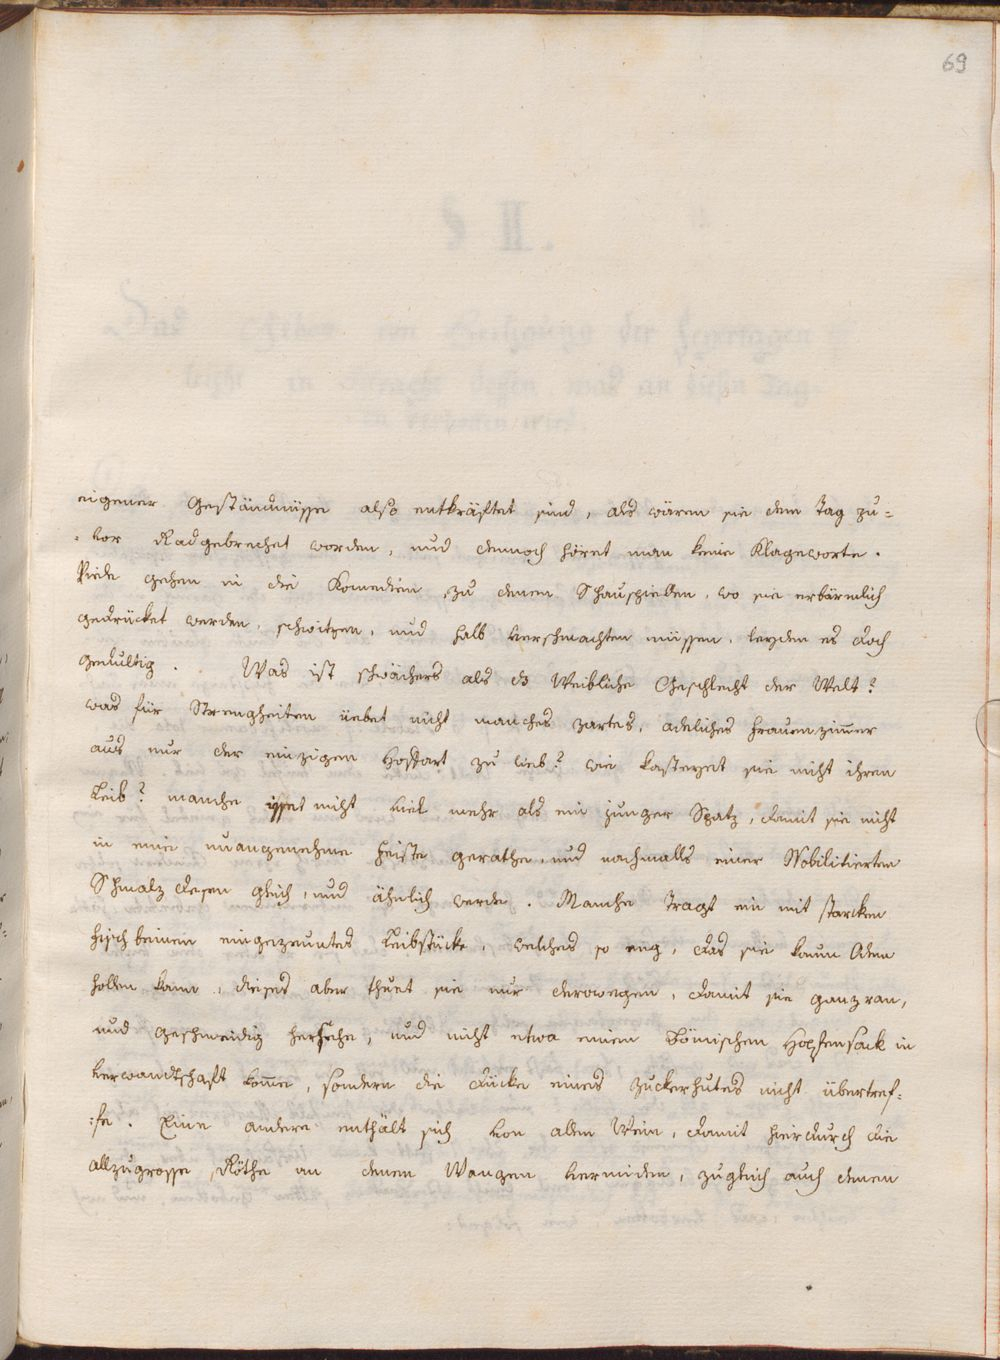 69
eigener Geständnüsse also entkräftet sind, als wären sie den Tag zu=
=vor Radgebrechet worden, und dennoch höret man keine Klageworte.
Viele gehen in die Komedien zu denen Schauspiellen, wo sie erbärmlich
gedrücket werden, schwitzen, und halb verschmachten müssen, leyden es doch
gedultig. Was ist schwächers als ds Weibliche Geschlecht der Welt?
was für Strengheiten üebet nicht manches zartes, adeliches Frauenzimer
aus nur der einzigen Hoffart zu lieb? wie kasteyet sie nicht ihren
Leib? manche isset nicht viel mehr als ein junger Spatz, damit sie nicht
in eine unangenehme Feiste gerathe, und nachmalls einer Nobilitierten
Schmalz Dosen gleich, und ähnlich werde. Manche tragt ein mit starcken
Fischbeinen eingezeuntes Leibstücke, welches so eng, das sie kaum Atem
hollen kann, dieses aber thuet sie nur derowegen, damit sie ganz ran,
und geschmeidig hersehe, und nicht etwa einem Bömischen Hopfensack in
Verwandtschaft kome, sondern die Dücke eines Zuckerhutes nicht übertref=
:fe. Eine andere enthält sich von allen Wein, damit hierdurch die
allzugrosse Röthe an denen Wangen vermiden, zugleich auch denen